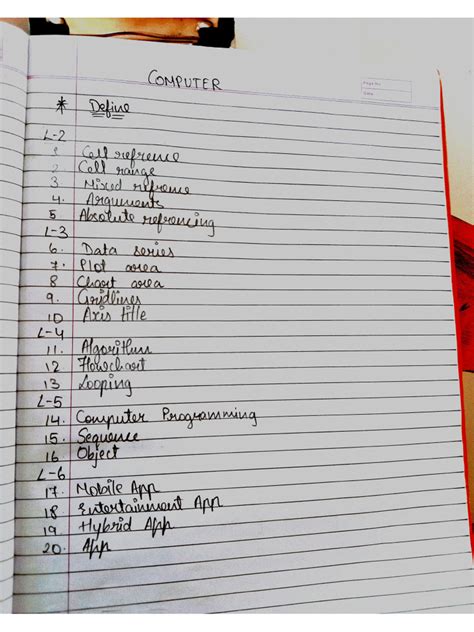 COMPUTER
* Define
L-2
1 Cell refrence
2 Cell range
3 Mixed refrence
4. Arguments
5 Absolute refrencing
L-3
6. Data series
7. Plot area
8 Chart area
9. Gridlines
10 Axis title
L-4
11. Algorithm
12 Flowchart
13 Looping
L-5
14. Computer Programming
15. Sequence
16 Object
L-6
17. Mobile App
18 Entertainment App
19 Hybrid App
20. App